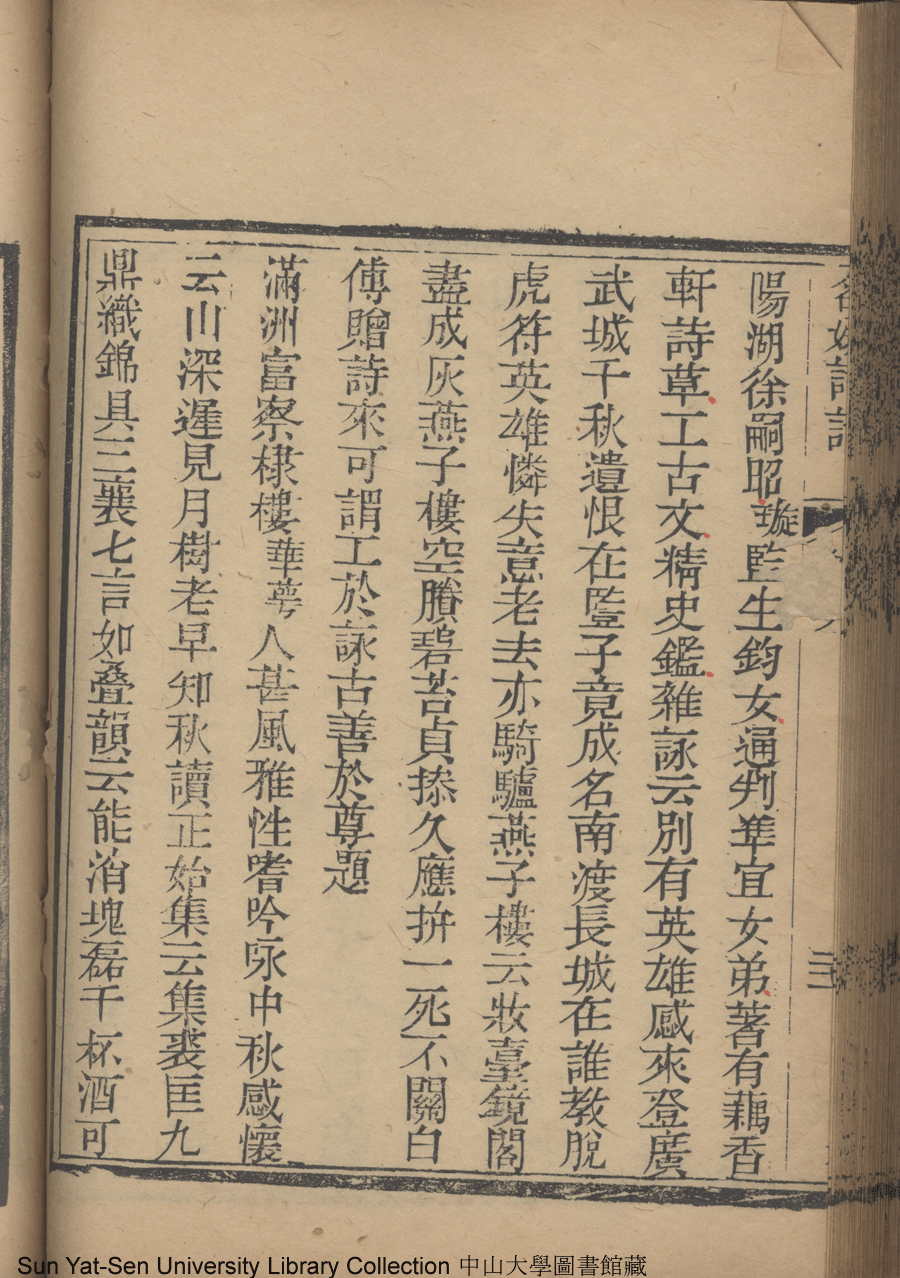 名媛詩話
三
陽湖徐嗣昭璇監生鈞女通判準宜女弟著有藕香
軒詩草工古文精史鑑雜詠云別有英雄感來登廣
武城千秋遺恨在豎子竟成名南渡長城在誰教脫
虎符英雄憐失意老去亦騎驢燕子樓云妝臺鏡閣
盡成灰燕子樓空賸碧苔貞操久應拚一死不關白
傅贈詩來可謂工於詠古善於尊題
滿洲富察棣樓華萼人甚風雅性嗜吟咏中秋感懷
云山深遲見月樹老早知秋讀正始集云集裘匡九
鼎織錦具三襄七言如叠韻云能消塊磊千杯酒可
Sun Yat-Sen University Library Collection 中山大學圖書館藏